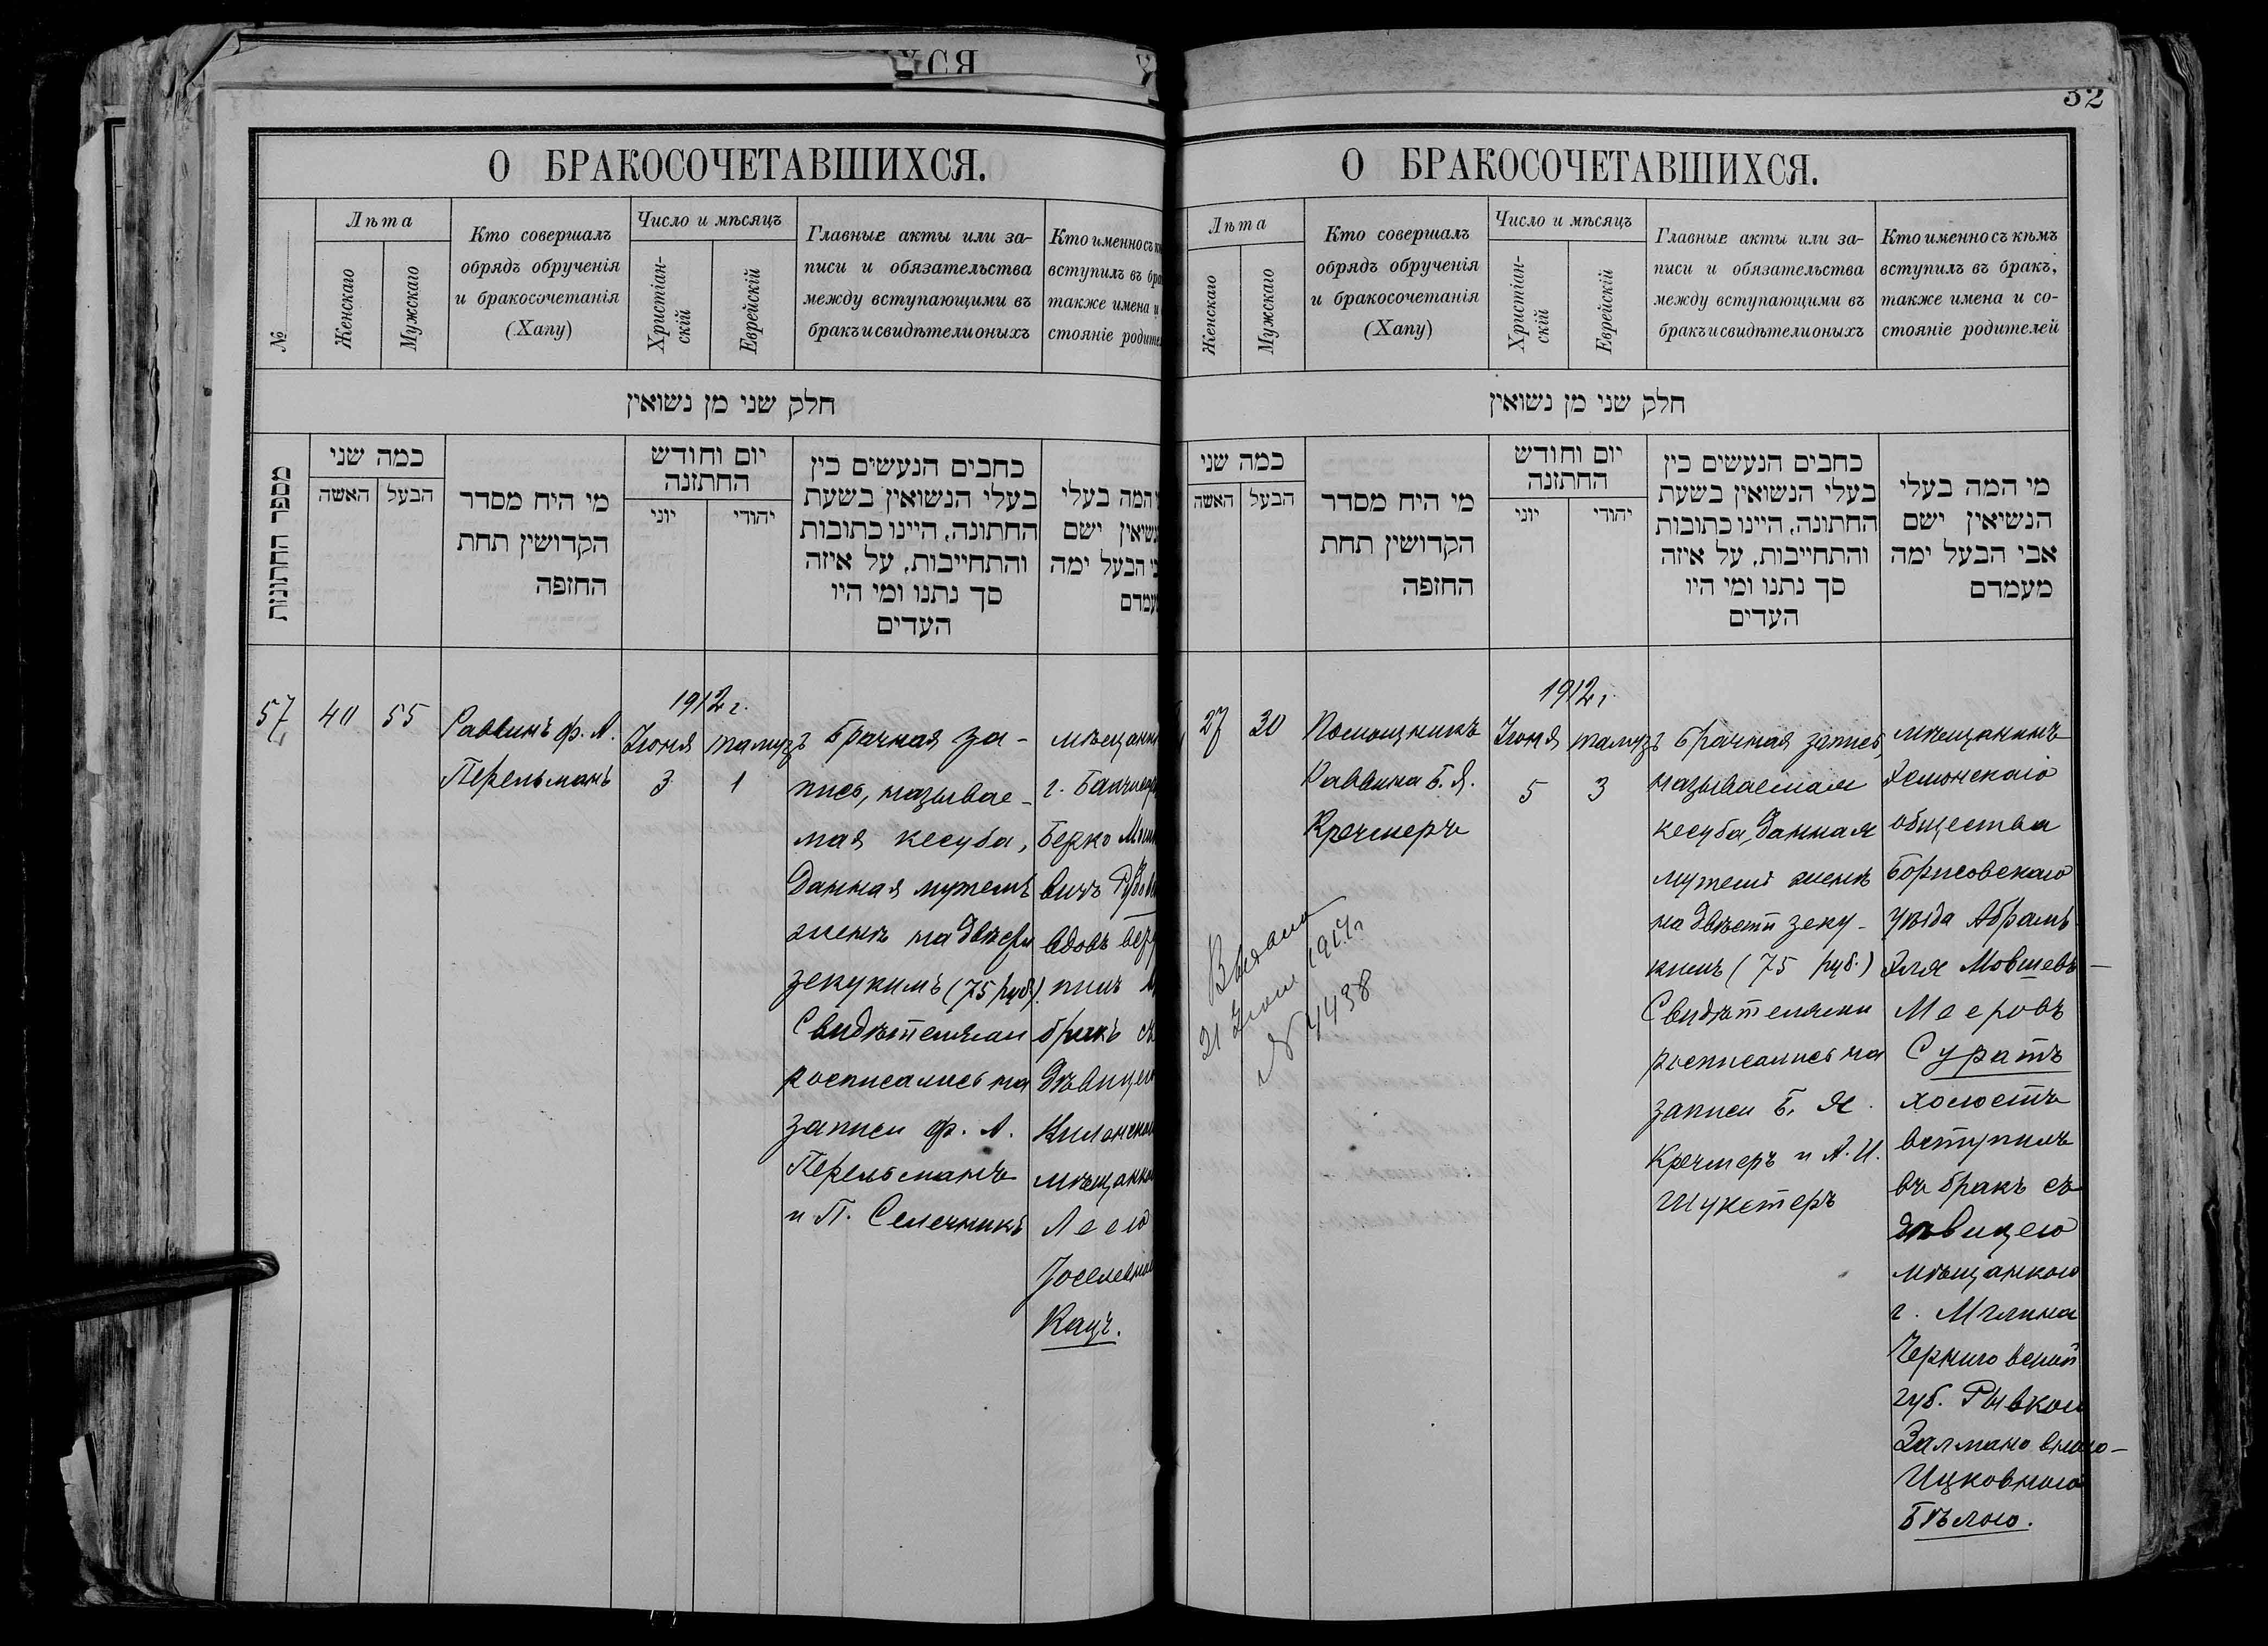 ХСЯ
О БРАКОСОЧЕТАВШИХСЯ.
№
Лѣта
Женскаго
Мужскаго
Кто совершалъ
обрядъ обрученія
и бракосочетанія
(Хапу)
Число и мѣсяцъ
Христіан-
скій
Еврейскій
Главные акты или за-
писи и обязательства
между вступающими въ
бракъ и свидѣтели оныхъ
Кто именно съ
вступилъ въ
также имена
стояніе
חלק שני מן נשואין
מספר החתונות
כמה שני
האשה
הבעל
מי היח מסדר
הקדושין תחת
החופה
יום וחודש
החתונה
יוני
יהודי
כתבים הנעשים בין
בעלי הנשואין בשעת
החתונה, היינו כתובות
והתחייבות, על איזה
סך נתנו ומי היו
העדים
המה בעלי
ישם
הבעל ימה
57
40
55
Раввинъ Ф. А.
Перельманъ
1912 г.
Іюня
3
тамузъ
1
Брачная за-
пись, называе-
мая кесуба,
данная мужемъ
женѣ на двѣсти
зекукимъ (75 руб.).
Свидѣтелями
росписались на
записи Ф. А.
Перельманъ
и П. Селечникъ
г.
Берко
вичъ
вдовъ
бракъ
Леею
Кацъ.
32
О БРАКОСОЧЕТАВШИХСЯ.
Лѣта
Женскаго
Мужскаго
Кто совершалъ
обрядъ обрученія
и бракосочетанія
(Хапу)
Число и мѣсяцъ
Христіан-
скій
Еврейскій
Главные акты или за-
писи и обязательства
между вступающими въ
бракъ и свидѣтели оныхъ
Кто именно съ кѣмъ
вступилъ въ бракъ,
также имена и со-
стояніе родителей
חלק שני מן נשואין
כמה שני
האשה
הבעל
מי היח מסדר
הקדושין תחת
החופה
יום וחודש
החתונה
יוני
יהודי
כתבים הנעשים בין
בעלי הנשואין בשעת
החתונה, היינו כתובות
והתחייבות, על איזה
סך נתנו ומי היו
העדים
מי המה בעלי
הנשיאין ישם
אבי הבעל ימה
מעמדם
27
30
Помощникъ
Раввина Б. Я.
Кречмеръ
1912 г.
Іюня
5
тамузъ
3
Брачная запись,
называемая
кесуба, данная
мужемъ женѣ
на двѣсти зеку-
кимъ (75 руб.)
Свидѣтелями
росписались на
записи Б. Я.
Кречмеръ и А. И.
Шукстеръ
мѣщанинъ
общества
Борисовскаго
уѣзда Абрамъ
Эля Мовшевъ-
Мееровъ
Суратъ
холостъ
вступилъ
въ бракъ съ
дѣвицею
мѣщанкою
г. Мглина
Черниговской
губ. Рывкою
Залмановною-
Ицковною
Бѣлою.
Выдано
21 1914 г
№ 4438